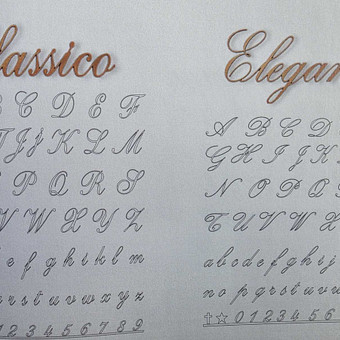 lassico
B C D E F
I J J K L M
P Q R S
V W X Y Z
f g h i k l m
r s t u v w x y z
1 2 3 4 5 6 7 8 9
Elegan
A B C D
G H I J K
N O P Q
T U V W X
a b c d e f g h i j
n o p q r s t u v w
† ☆ 0 1 2 3 4 5 6